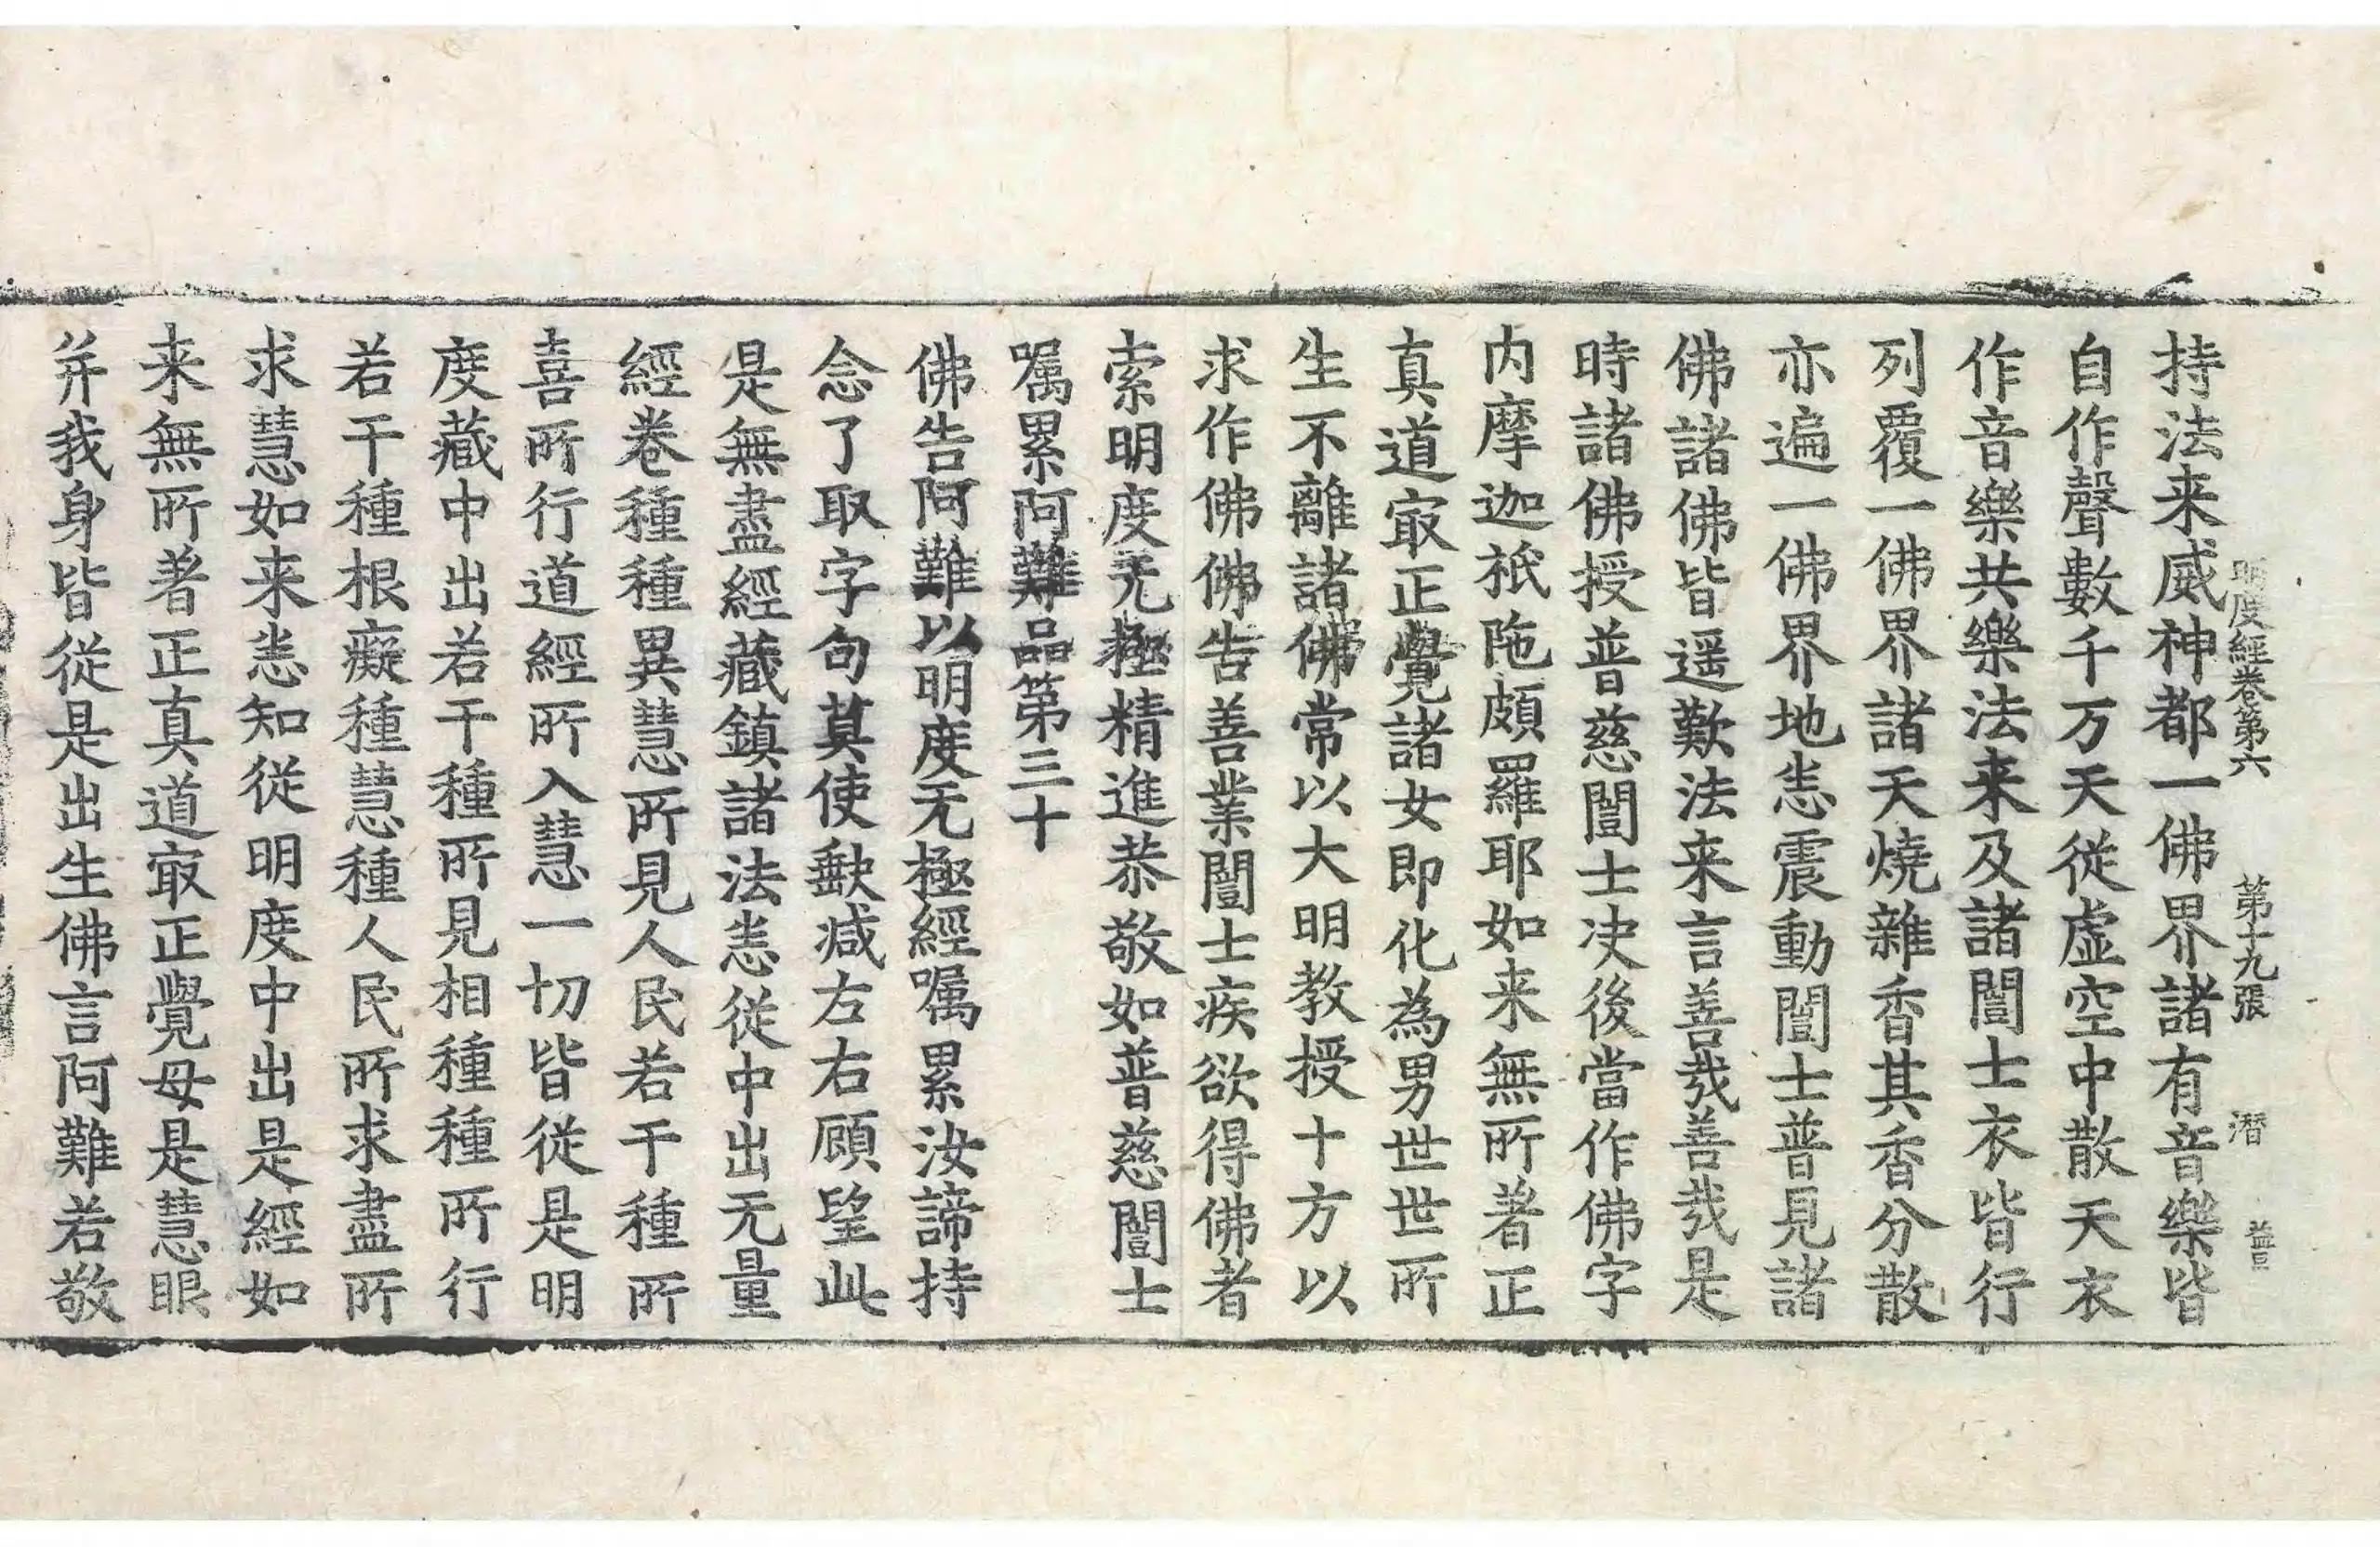 明度経卷第六 第十九張 潜 益旦
持法来威神都一佛界諸有音樂皆
自作聲數千万天從虛空中散天衣
作音樂共樂法来及諸闓士衣皆行
列覆一佛界諸天燒雜香其香分散
亦遍一佛界地恙震動闓士普見諸
佛諸佛皆遥歎法来言善哉善哉是
時諸佛授普慈闓士决後當作佛字
内摩迦祇陁頗羅耶如来無所著正
真道㝡正覺諸女即化為男世世所
生不離諸佛常以大明教授十方以
求作佛佛告善業闓士疾欲得佛者
索明度无極精進恭敬如普慈闓士
嘱累阿難品第三十
佛告阿難以明度无極經嘱累汝諦持
念了取字句莫使歉减左右顧望此
是無盡經藏鎮諸法恙從中出无量
經卷種種異慧所見人民若干種所
喜所行道經所入慧一切皆從是明
度藏中出若干種所見相種種所行
若干種根癡種慧種人民所求盡所
求慧如来恙知從明度中出是經如
来無所著正真道㝡正覺母是慧眼
并我身皆從是出生佛言阿難若敬